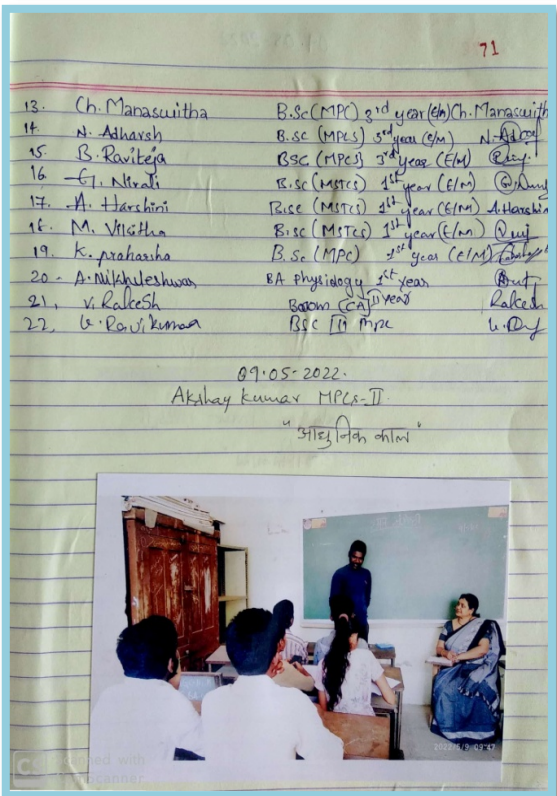 71
13. Ch. Manaswitha B.Sc (MPC) 3rd year (E/M) Ch. Manaswith
14. N. Adharsh B.SC (MPCS) 3rd year (E/M)
15. B. Raviteja BSC (MPCS) 3rd year (E/M)
16. G. Nirali B.Sc (MSTCS) 1st year (E/M)
17. A. Harshini B.Sc (MSTCS) 1st year (E/M) A. Harshin
18. M. B.Sc (MSTCS) 1st year (E/M)
19. K. praharsha B.Sc (MPC) 1st year (E/M)
20. A. Nikhileshwar BA Physiology 1st year
21. V. RakeSh Bcom (CA) II year Rakesh
22. G. Ravi kumar BSC II MPC
09.05.2022.
Akshay Kumar MPCs-II
"आधुनिक काल"
2022/5/9 09:47
CS
Scanned with
CamScanner